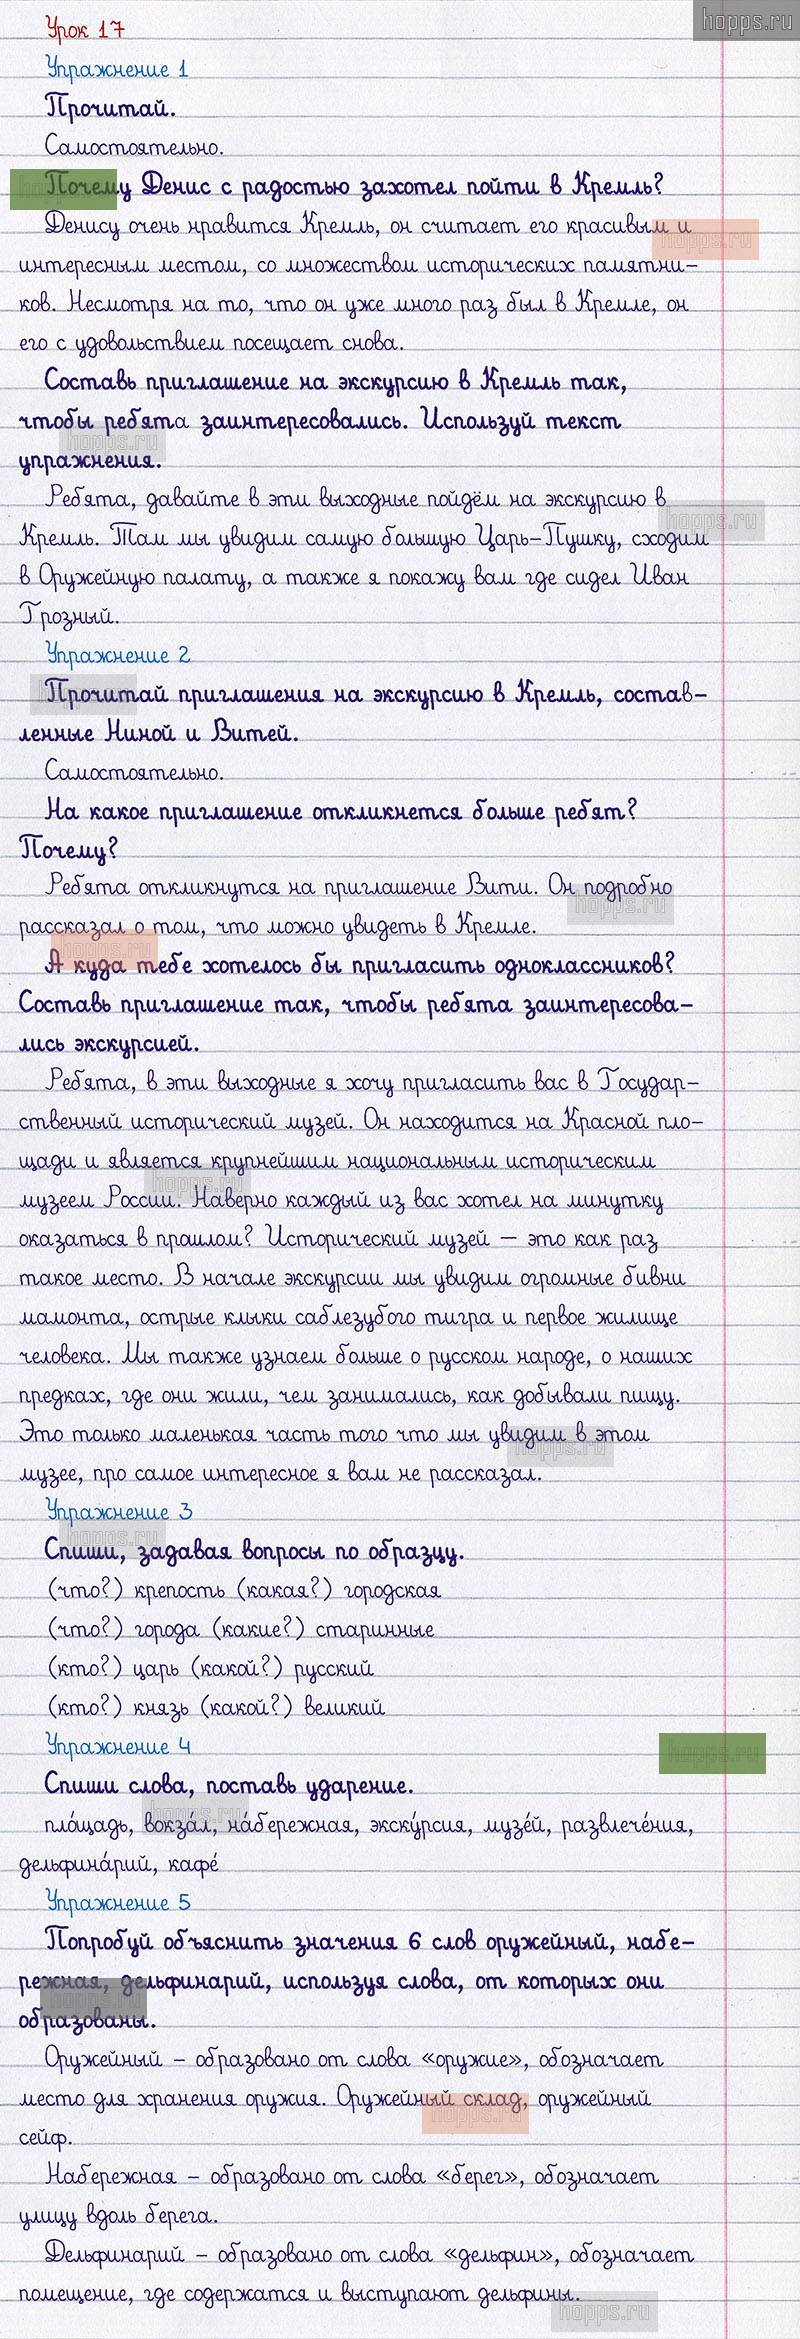 hopps.ru
Урок 17
Упражнение 1
Прочитай.
Самостоятельно.
Почему Денис с радостью захотел пойти в Кремль?
Денису очень нравится Кремль, он считает его красивым и
интересным местом, со множеством исторических памятни-
ков. Несмотря на то, что он уже много раз был в Кремле, он
его с удовольствием посещает снова.
Составь приглашение на экскурсию в Кремль так,
чтобы ребята заинтересовались. Используй текст
упражнения.
Ребята, давайте в эти выходные пойдём на экскурсию в
Кремль. Там мы увидим самую большую Царь-Пушку, сходим
в Оружейную палату, а также я покажу вам где сидел Иван
Грозный.
Упражнение 2
Прочитай приглашения на экскурсию в Кремль, состав-
ленные Ниной и Витей.
Самостоятельно.
На какое приглашение откликнется больше ребят?
Почему?
Ребята откликнутся на приглашение Вити. Он подробно
рассказал о том, что можно увидеть в Кремле.
А куда тебе хотелось бы пригласить одноклассников?
Составь приглашение так, чтобы ребята заинтересова-
лись экскурсией.
Ребята, в эти выходные я хочу пригласить вас в Государ-
ственный исторический музей. Он находится на Красной пло-
щади и является крупнейшим национальным историческим
музеем России. Наверно каждый из вас хотел на минутку
оказаться в прошлом? Исторический музей – это как раз
такое место. В начале экскурсии мы увидим огромные бивни
мамонта, острые клыки саблезубого тигра и первое жилище
человека. Мы также узнаем больше о русском народе, о наших
предках, где они жили, чем занимались, как добывали пищу.
Это только маленькая часть того что мы увидим в этом
музее, про самое интересное я вам не рассказал.
Упражнение 3
Спиши, задавая вопросы по образцу.
(что?) крепость (какая?) городская
(что?) города (какие?) старинные
(кто?) царь (какой?) русский
(кто?) князь (какой?) великий
Упражнение 4
Спиши слова, поставь ударение.
пло́щадь, вокза́л, на́бережная, экску́рсия, музе́й, развлече́ния,
дельфина́рий, кафе́
Упражнение 5
Попробуй объяснить значения 6 слов оружейный, набе-
режная, дельфинарий, используя слова, от которых они
образованы.
Оружейный – образовано от слова «оружие», обозначает
место для хранения оружия. Оружейный склад, оружейный
сейф.
Набережная – образовано от слова «берег», обозначает
улицу вдоль берега.
Дельфинарий – образовано от слова «дельфин», обозначает
помещение, где содержатся и выступают дельфины.
hopps.ru